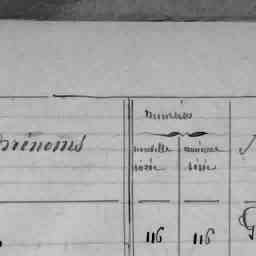 numéros
Prénoms
nouvelle ancienne
série série
116 116